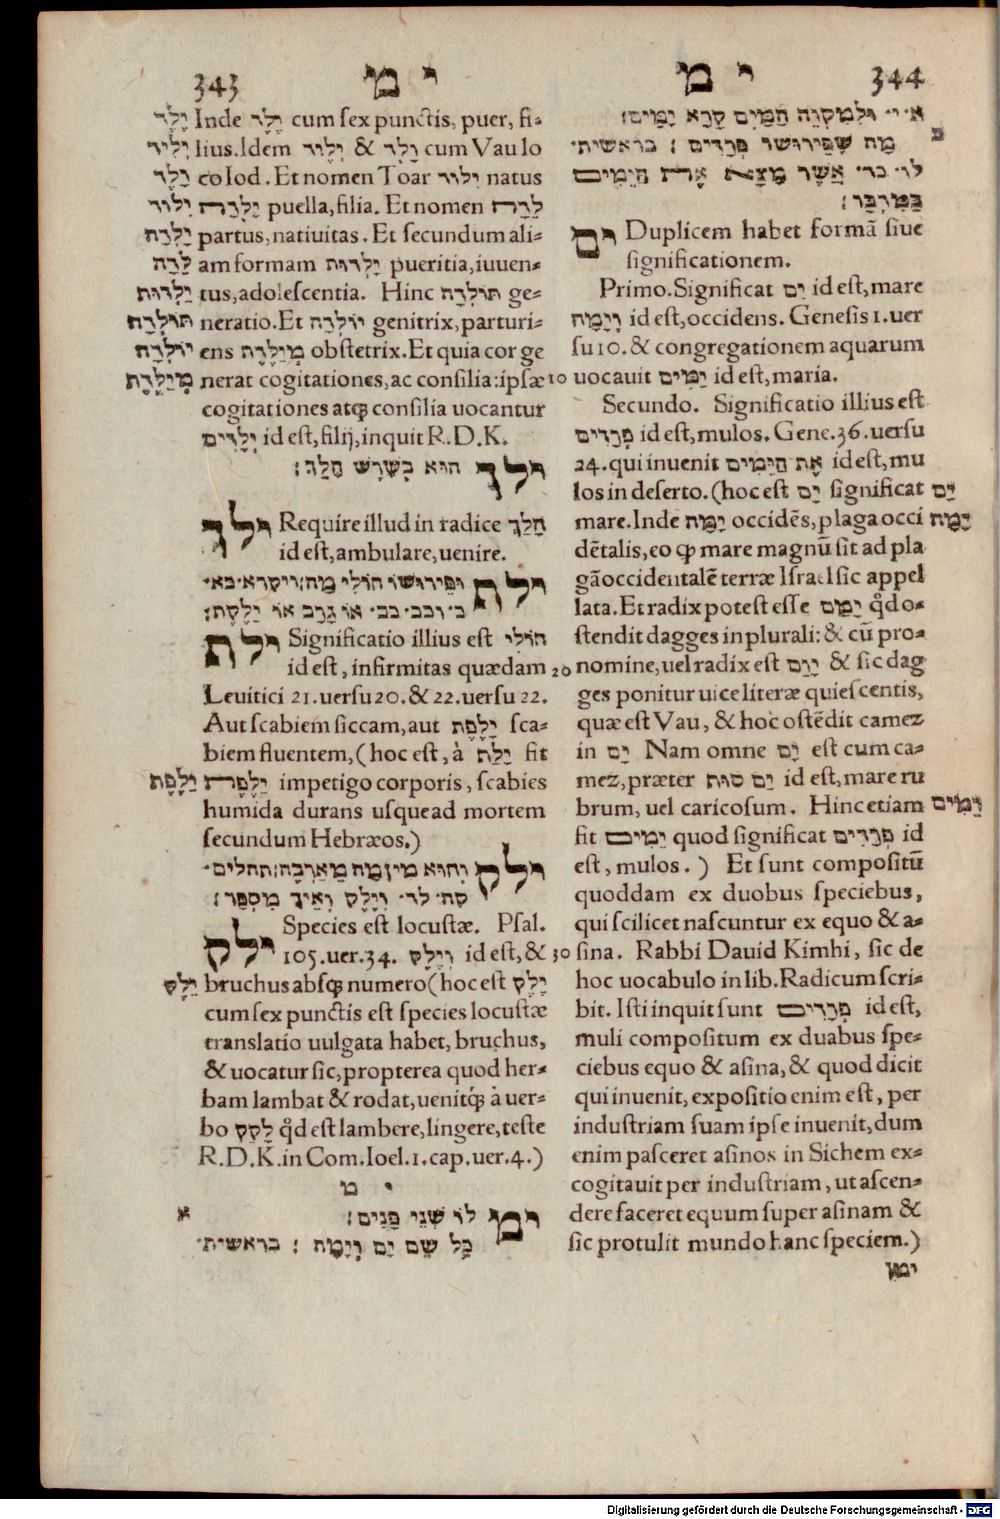 343 ימ
יֶלֶד Inde יֶלֶד cum sex punctis, puer, fi⸗
יִלִיד lius. Idem יִלוּד & יָלַד cum Vau lo
יֶלֶד co Iod. Et nomen Toar יִלוּד natus
יִלוּד יַלְדָה puella, filia. Et nomen לֵדָה
יַלְדָה partus, natiuitas. Et secundum ali⸗
לֵדָה am formam יַלְדוּת pueritia, iuuen⸗
יַלְדוּת tus, adolescentia. Hinc תּוֹלְדָה ge⸗
תּוֹלְדָה neratio. Et יוֹלְדָה genitrix, parturi⸗
יוֹלְדָה ens מְיַלֶדֶת obstetrix. Et quia cor ge
מְיַלֶדֶת nerat cogitationes, ac consilia: ipsæ 10
cogitationes atqꝫ consilia uocantur
יְלָדִים id est, filij, inquit R. D. K.
ילך הוּא בְּשׁרֶשׁ הָלַךְ׃
ילך Require illud in radice הָלַךְ
id est, ambulare, uenire.
ילת וּפֵירוּשׁוֹ חוֹלִי מַה׃ויקרא׳ כא׳
כ׳ וכב׳ כב׳ אוֹ גָרָב אוֹ יַלֶפֶת׃
ילת Significatio illius est חוֹלִי
id est, infirmitas quædam 20
Leuitici 21. uersu 20. & 22. uersu 22.
Aut scabiem siccam, aut יַלֶפֶת sca⸗
biem fluentem, (hoc est, à יָלַת fit
יַלֶפֶת יַלֶפֶת impetigo corporis, scabies
humida durans usquead mortem
secundum Hebræos.)
ילק וְהוּא מִין מַה מֵאַרְבֶּה׃תהלים׳
קה׳ לד׳ וְיֶלֶק וְאֵין מִסְפָּר׃
ילק Species est locustæ. Psal.
105. uer. 34. וְיֶלֶק id est, & 30
יֶלֶק bruchus absqꝫ numero (hoc est יֶלֶק
cum sex punctis est species locustæ
translatio uulgata habet, bruchus,
& uocatur sic, propterea quod her⸗
bam lambat & rodat, uenitqꝫ à uer⸗
bo לָקַק qd̄ est lambere, lingere, teste
R. D. K. in Com. Ioel. 1. cap. uer. 4.)
י מ
ימ לוֹ שְׁנֵי פָּנִים׃ א
כָּל שֵׁם יָם וְיָמָּה ׃ בראשית׳
ימ 344
א׳ י׳ וּלְמִקְוֵה הַמַּיִם קָרָא יַמִּים׃
מַה שֶׁפֵּירוּשׁוֹ פְּרָדִים ׃ בראשית׳ ב
לו׳ כד׳ אֲשֶׁר מָצָא אֶת הַיֵּמִים
בַּמִּדְבָּר׃
ים Duplicem habet formã siue
significationem.
Primo. Significat יָם id est, mare
וְיָמָּה id est, occidens. Genesis 1. uer
su 10. & congregationem aquarum
uocauit יַמִּים id est, maria.
Secundo. Significatio illius est
פְּרָדִים id est, mulos. Gene. 36. uersu
24. qui inuenit אֶת הַיֵּמִים id est, mu
los in deserto. (hoc est יָם significat יָם
mare. Inde יָמָּה occidẽs, plaga occi יָמָּה
dẽtalis, eo ꝙ mare magnū sit ad pla
gã occidentalẽ terræ Israel sic appel
lata. Et radix potest esse יָמַם qd̄ o⸗
stendit dagges in plurali: & cū pro⸗
nomine, uel radix est יָוַם & sic dag
ges ponitur uice literæ quiescentis,
quæ est Vau, & hoc ostẽdit camez
in יָם Nam omne יָם est cum ca⸗
mez, præter יַם סוּף id est, mare ru
brum, uel caricosum. Hinc etiam יֵמִים
fit יֵמִים quod significat פְּרָדִים id
est, mulos. ) Et sunt compositū
quoddam ex duobus speciebus,
qui scilicet nascuntur ex equo & a⸗
sina. Rabbi Dauid Kimhi, sic de
hoc uocabulo in lib. Radicum scri⸗
bit. Isti inquit sunt פְּרָדִים id est,
muli compositum ex duabus spe⸗
ciebus equo & asina, & quod dicit
qui inuenit, expositio enim est, per
industriam suam ipse inuenit, dum
enim pasceret asinos in Sichem ex⸗
cogitauit per industriam, ut ascen⸗
dere faceret equum super asinam &
sic protulit mundo hanc speciem.)
ימן
Digitalisierung gefördert durch die Deutsche Forschungsgemeinschaft - DFG